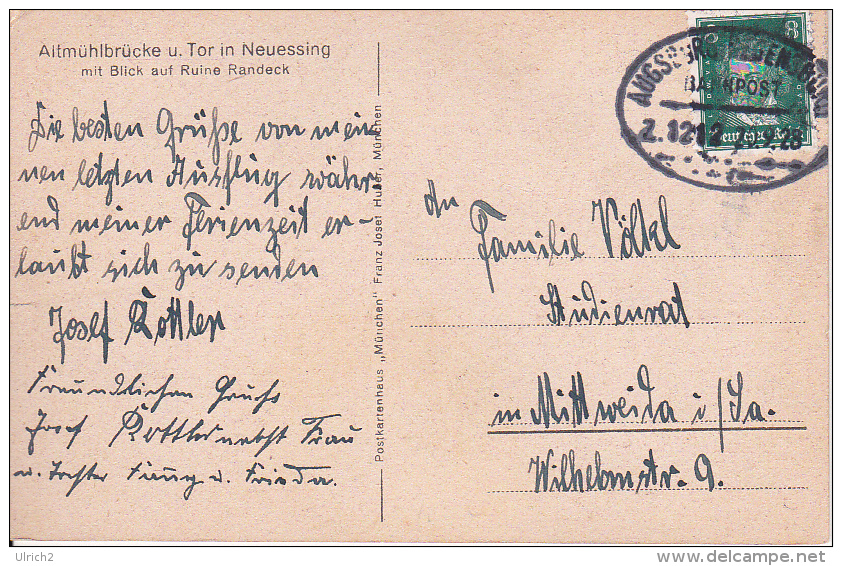 Altmühlbrücke u. Tor in Neuessing
mit Blick auf Ruine Randeck
Die besten Grüße von mei-
nen letzten Ausflug währ-
end meiner Ferienzeit er-
laubt sich zu senden
Josef Kottler
Freundlichen Gruhs
Josef Kottler nebst Frau
u. Tochter Fanny u. Frieda.
Postkartenhaus „München“ Franz Josef Huber, München
An
Familie Völkl
Studienrat
in Mittweida i/Sa.
Wilhelmstr. 9.
8
AUGSBURG
BAHNPOST
Z.1212
Deutsches Reich
Ulrich2
delcampe.net